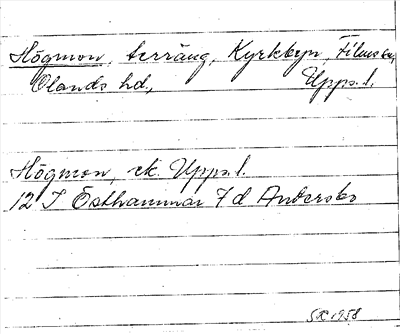 Högmon, terräng, Kyrkbyn, Films sn,
Olands hd., Upps. l.
Högmon, ek. Upps. l.
12 I Östhammar 7 d Andersbo
1958